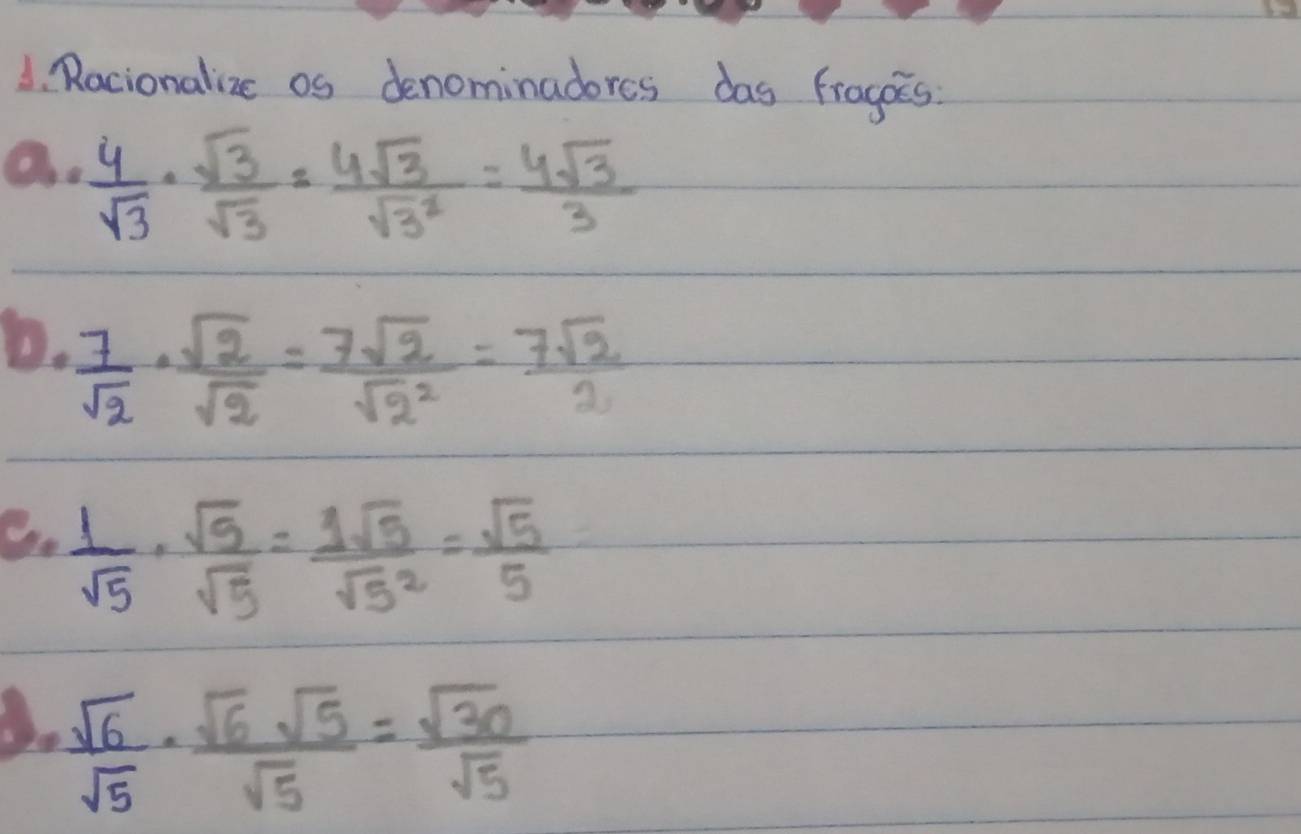 1. Racionalize os denominadores das fragões:
a. 4/√3 · √3/√3 = 4√3/√3² = 4√3/3
b. 7/√2 · √2/√2 = 7√2/√2² = 7√2/2
c. 1/√5 · √5/√5 = 1√5/√5² = √5/5
d. √6/√5 · √6 √5/√5 = √30/√5